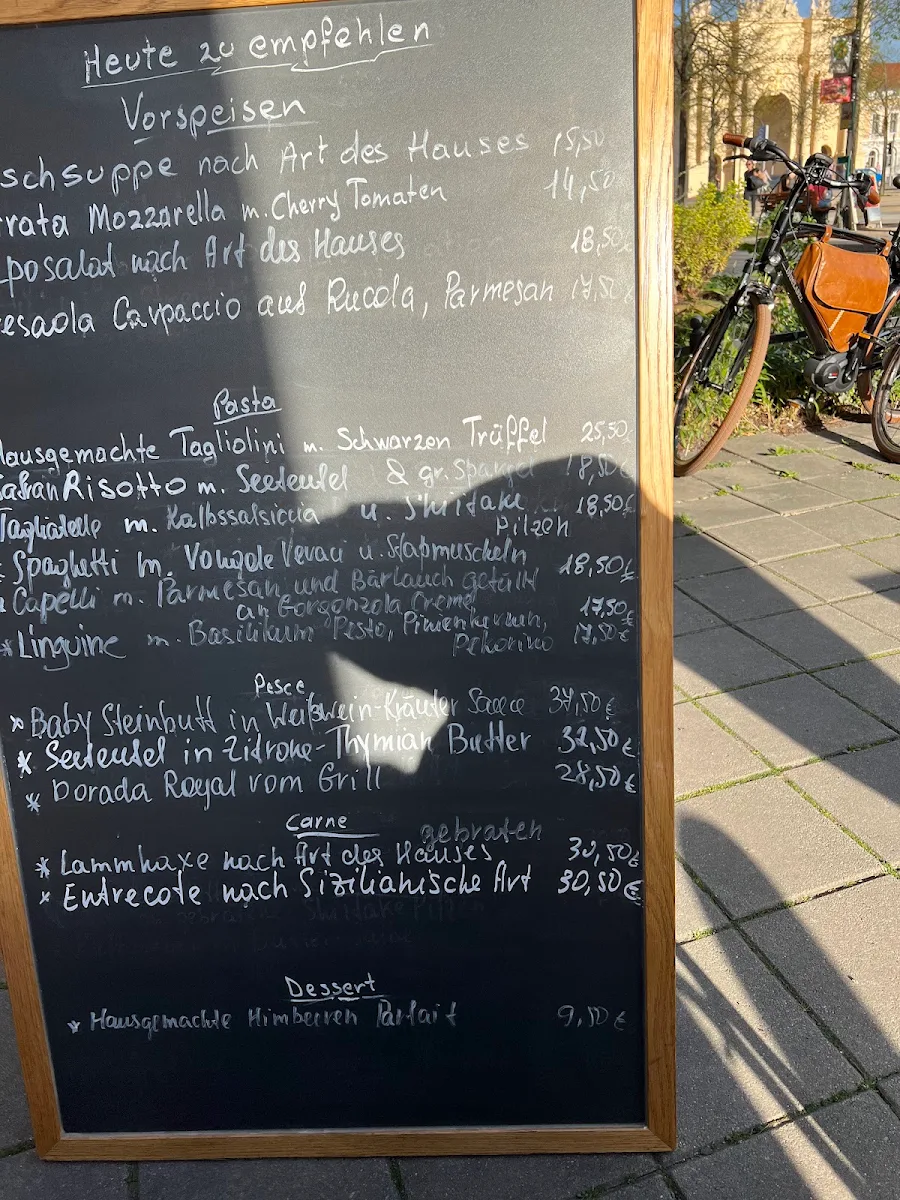 Heute zu empfehlen
Vorspeisen
schsuppe nach Art des Hauses 15,50
rrata Mozzarella m. Cherry Tomaten 14,50
posalat nach Art des Hauses 18,50€
resaola Carpaccio auf Rucola, Parmesan 17,50€
Pasta
Hausgemachte Tagliolini m. Schwarzen Trüffel 25,50
Safran Risotto m. Seeteufel & gr. Spargel 18,50€
Tagliatelle m. Kalbssalsiccia u. Shiitake 18,50€
Pilzen
* Spaghetti m. Vongole Veraci u. Stabmuscheln 18,50€
Capelli m. Parmesan und Bärlauch gefüllt
an Gorgonzola Creme 17,50€
* Linguine m. Basilikum Pesto, Pinienkernen, 17,50€
Pekorino
Pesce
* Baby Steinbutt in Weißwein-Kräuter 37,50€
* Seeteufel in Zitrone-Thymian Butter 32,50€
* Dorada Royal vom Grill 28,50€
Carne
gebraten
* Lammhaxe nach Art des Hauses 30,50€
* Entrecote nach Sizilianische Art 30,50€
Dessert
* Hausgemachte Himbeeren Parfait 9,50€